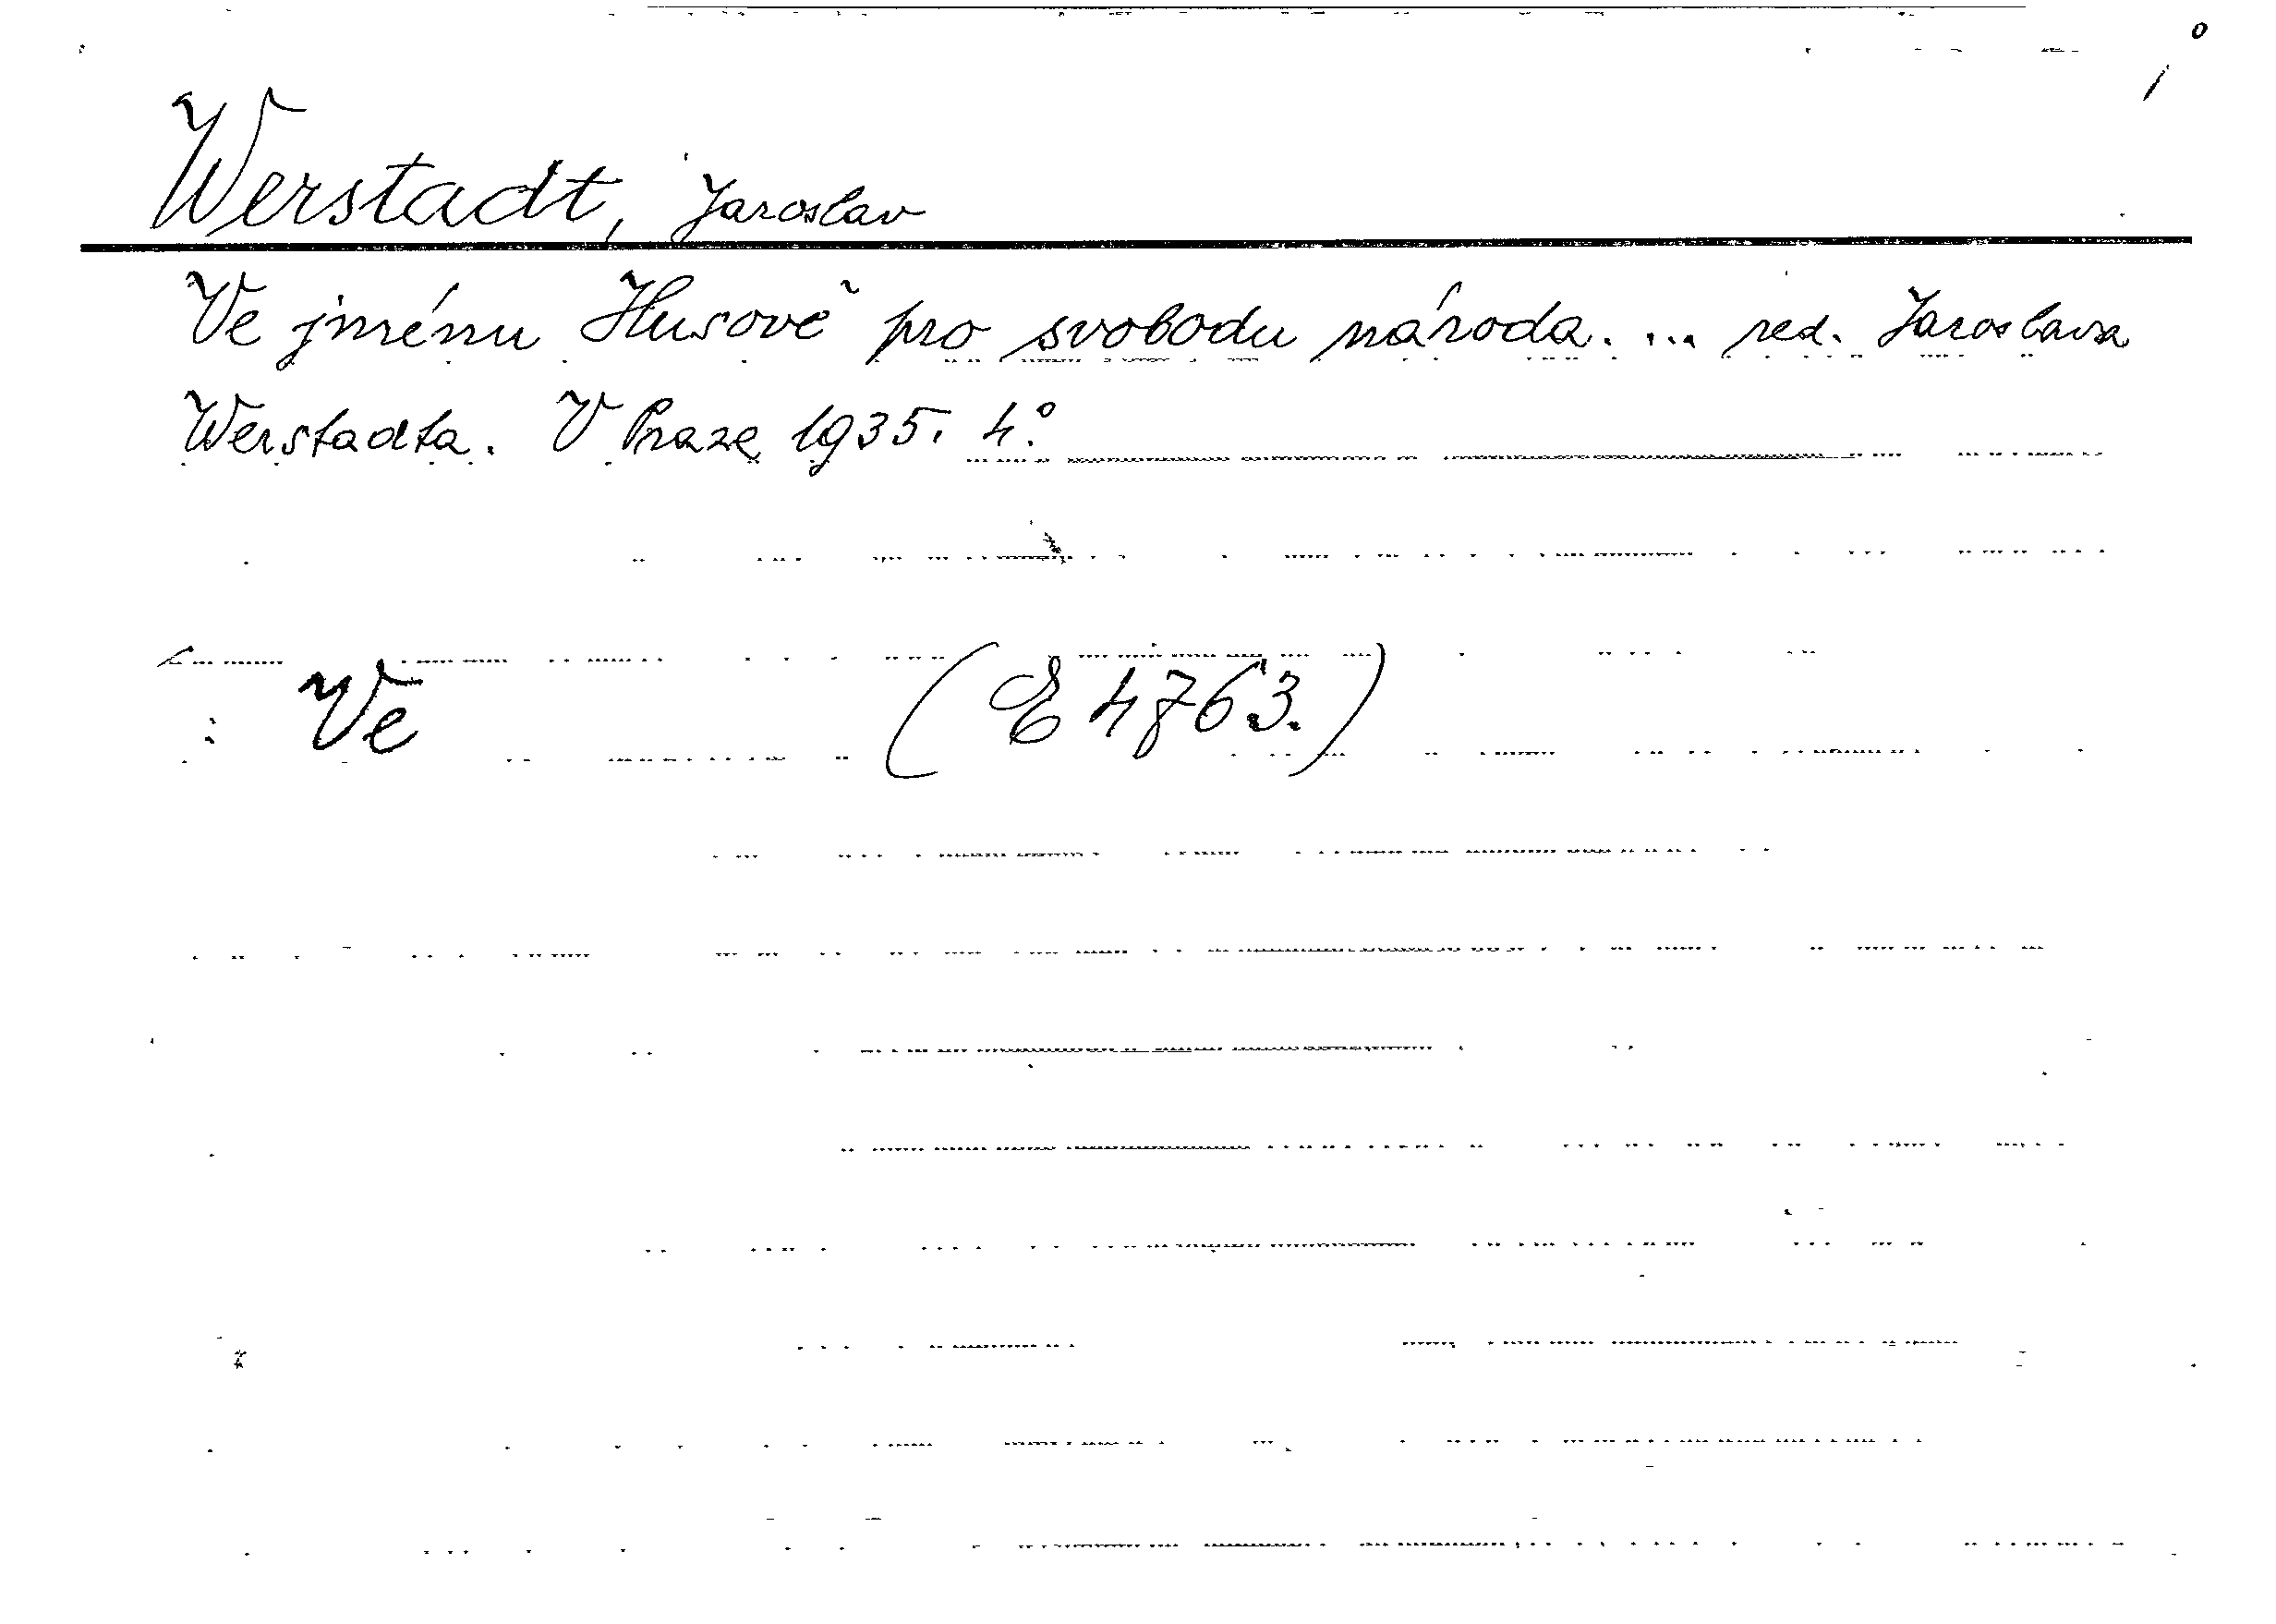 Werstadt, Jaroslav
Ve jménu Husově pro svobodu národa. ... red. Jaroslava
Werstadta. V Praze 1935. 4.°
Ve (E 4763.)